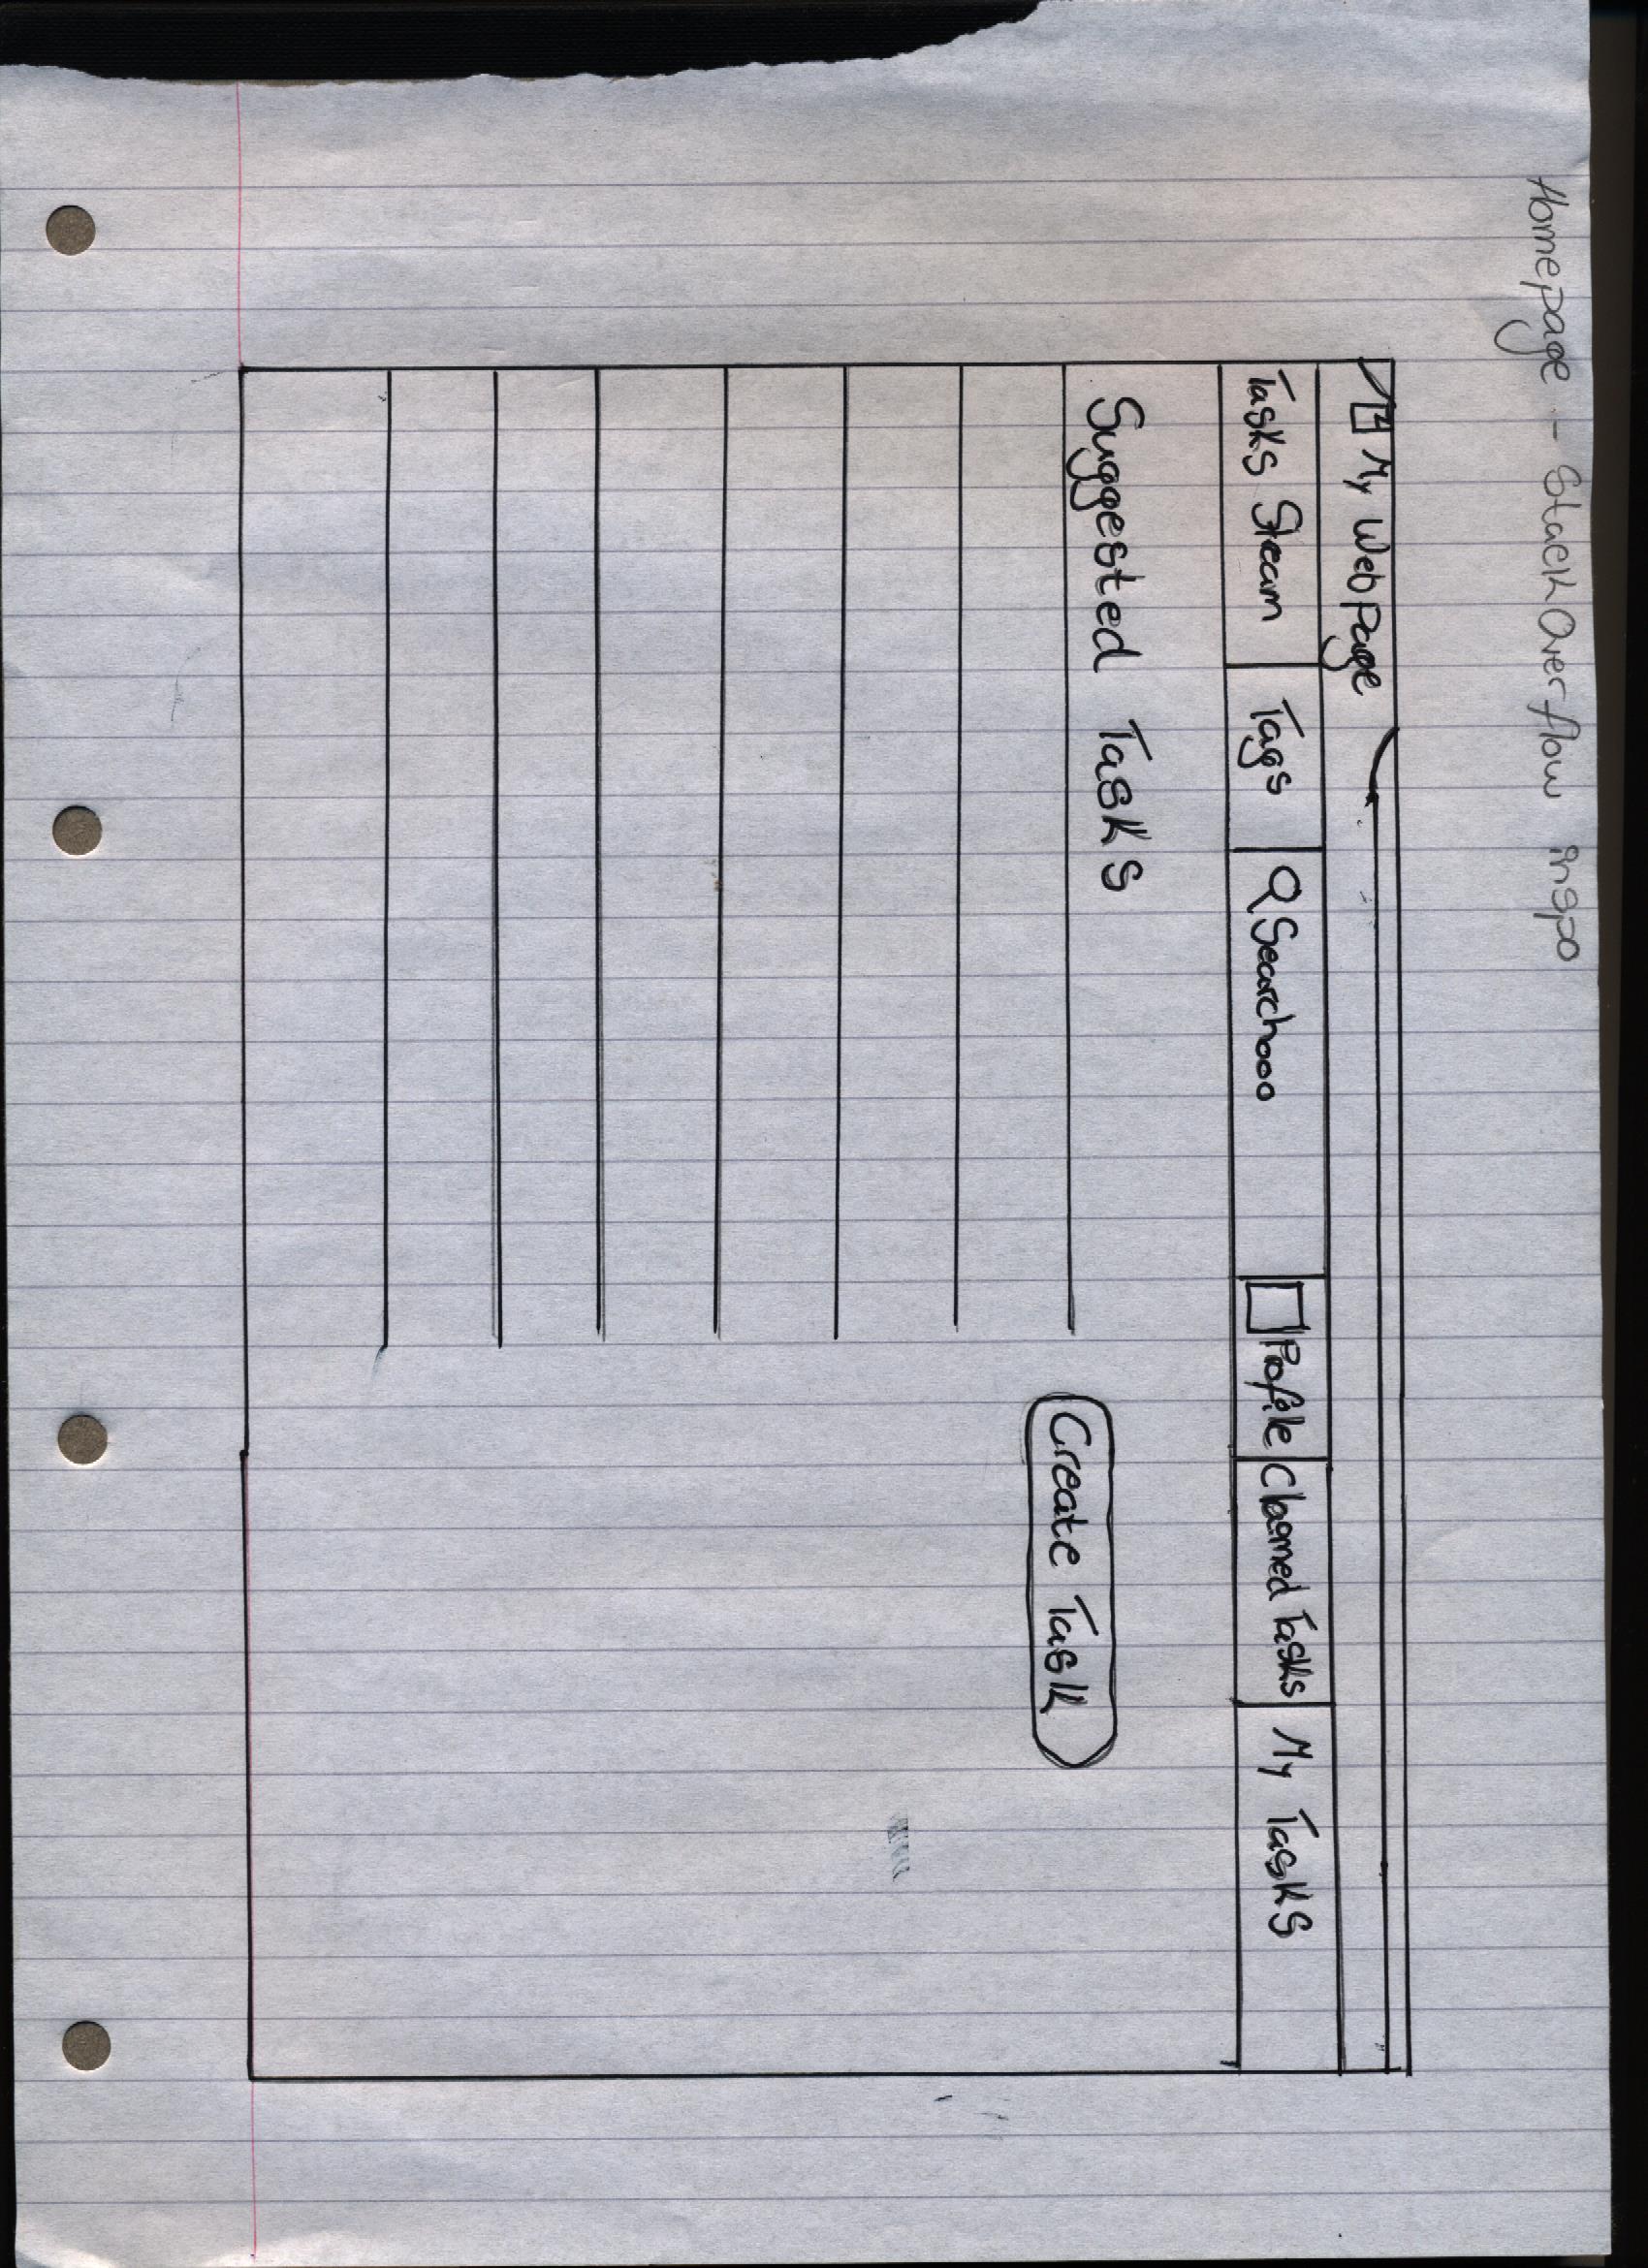 Homepage - StackOverflow inspo
My Web Page
Tasks Stream Tags Search... Profile Claimed Tasks My Tasks
Suggested Tasks
Create Task